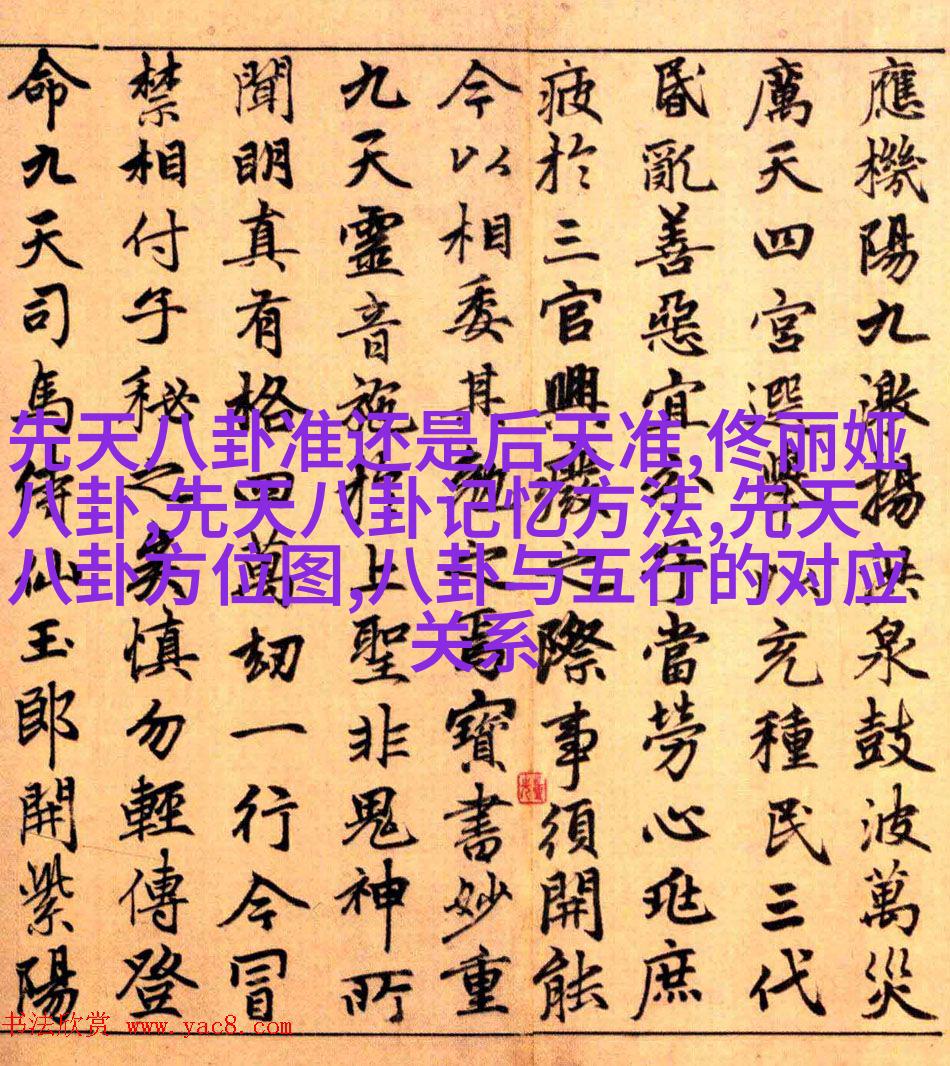 應機陽九激揚洪泉鼓波萬災
厲天四宮選舉以充種民三代
昏亂善惡宜分子當勞心兆庶
疲於三官興廢之際事須開能
今以相委其勉之焉寶書妙重
九天靈音施於上聖非鬼神所
聞明真有格四萬劫一行今冒
禁相付子秘之矣慎勿輕傳登
命九天司馬侍仙玉郎開紫陽
先天八卦准还是后天准,佟丽娅
八卦,先天八卦记忆方法,先天
八卦方位图,八卦与五行的对应
关系
书法欣赏 www.yac8.com